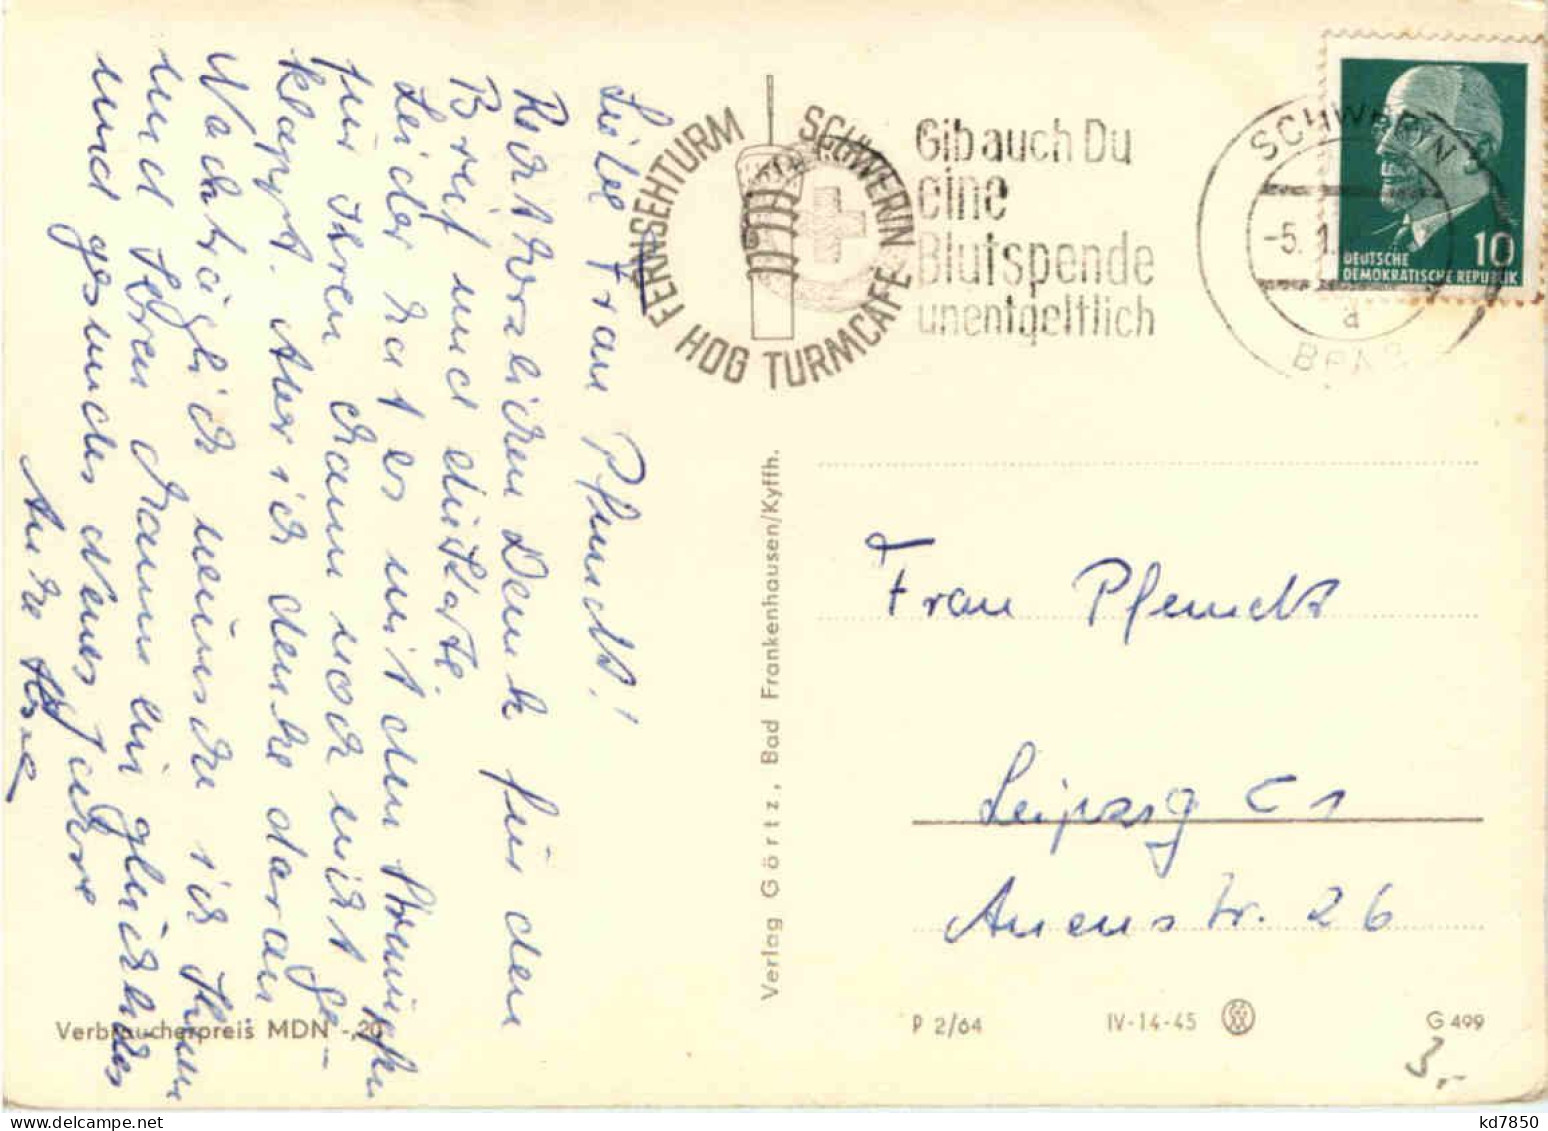 Liebe Frau Pfundt!
Recht herzlichen Dank für den
Brief und die Karte.
Leider hat es mit den Strümpfen
für Ihren Mann noch nicht ge-
klappt. Aber ich denke daran
Nachträglich wünsche ich Ihnen
und Ihren Mann ein glückliches
und gesundes Neues Jahre
FERNSEHTURM SCHWERIN
HOG TURMCAFÉ
Gib auch Du
eine
Blutspende
unentgeltlich
SCHWERIN
-5. 1.
a
DEUTSCHE
DEMOKRATISCHE REPUBLIK
10
Verlag Görtz, Bad Frankenhausen/Kyffh.
Frau Pfundt
Leipzig C 1
Auenstr. 26
Verbraucherpreis MDN -.20
P 2/64
IV-14-45
G 499
3,-
kd7850